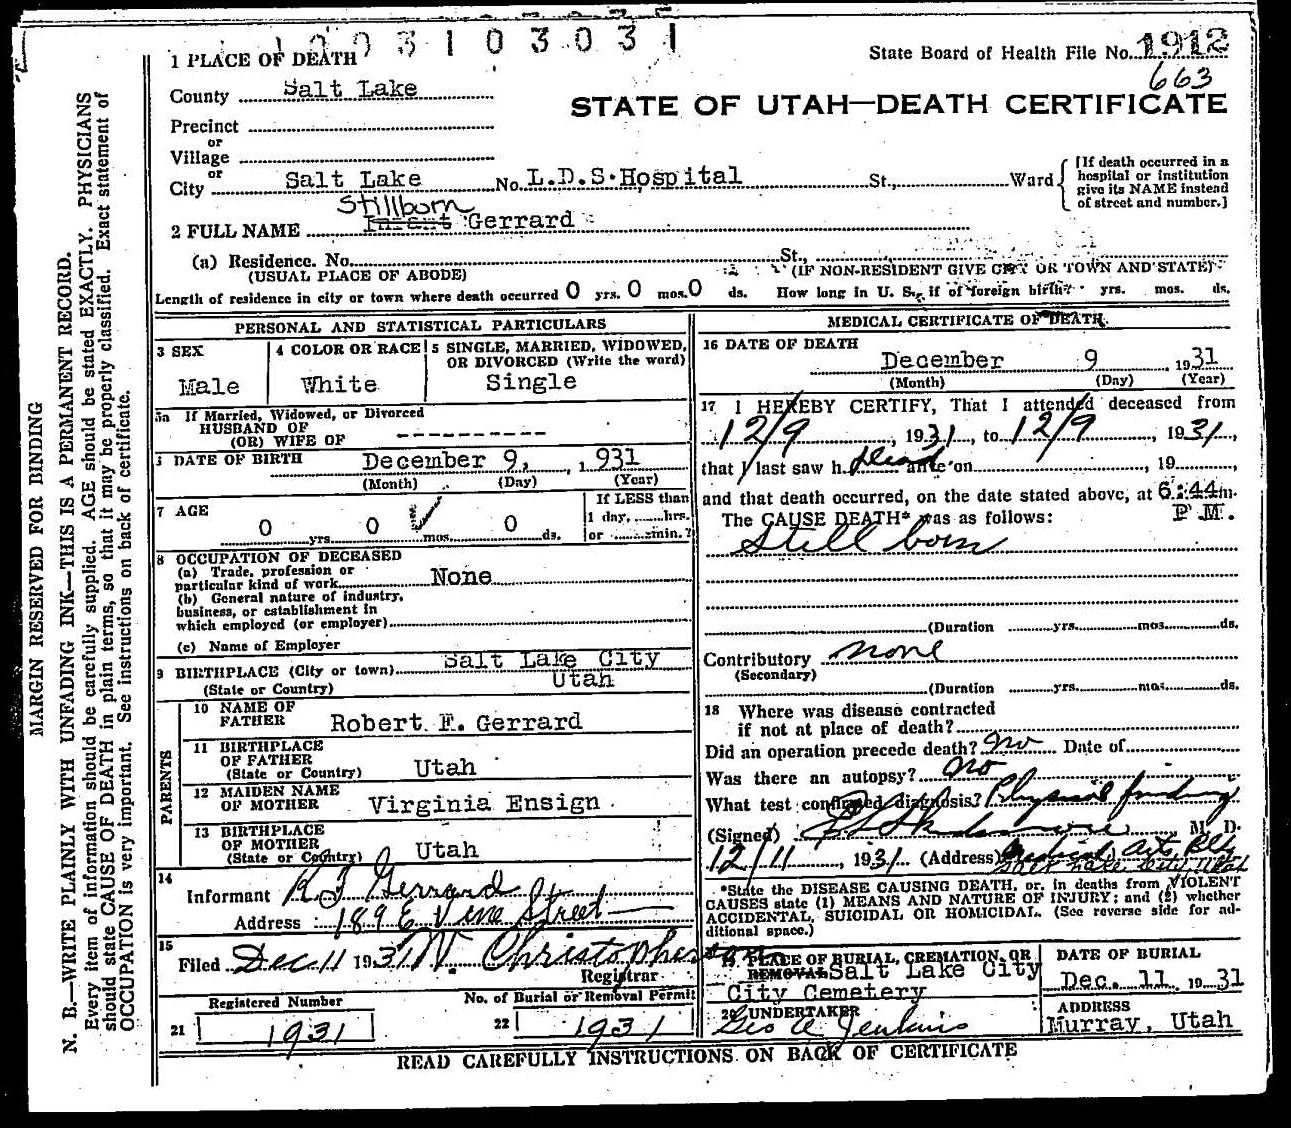 1003103031
State Board of Health File No. 1912
663
1 PLACE OF DEATH
County Salt Lake
STATE OF UTAH—DEATH CERTIFICATE
Precinct
or
Village
or
City Salt Lake No. L.D.S. Hospital St., Ward
[If death occurred in a hospital or institution give its NAME instead of street and number.]
Stillborn
2 FULL NAME Infant Gerrard
(a) Residence. No. St.,
(USUAL PLACE OF ABODE) (IF NON-RESIDENT GIVE CITY OR TOWN AND STATE)
Length of residence in city or town where death occurred 0 yrs. 0 mos. 0 ds. How long in U. S., if of foreign birth? yrs. mos. ds.
PERSONAL AND STATISTICAL PARTICULARS
3 SEX
Male
4 COLOR OR RACE
White
5 SINGLE, MARRIED, WIDOWED, OR DIVORCED (Write the word)
Single
5a If Married, Widowed, or Divorced
HUSBAND OF
(OR) WIFE OF ----------
DATE OF BIRTH December 9, 1931
(Month) (Day) (Year)
7 AGE
0 yrs. 0 mos. 0 ds.
If LESS than
1 day, hrs.
or min.?
8 OCCUPATION OF DECEASED
(a) Trade, profession or
particular kind of work None
(b) General nature of industry,
business, or establishment in
which employed (or employer)
(c) Name of Employer
9 BIRTHPLACE (City or town) Salt Lake City
(State or Country) Utah
PARENTS
10 NAME OF FATHER Robert F. Gerrard
11 BIRTHPLACE OF FATHER
(State or Country) Utah
12 MAIDEN NAME OF MOTHER Virginia Ensign
13 BIRTHPLACE OF MOTHER
(State or Country) Utah
14
Informant R F Gerrard
Address 189 E Vine Street
15
Filed Dec 11 1931 W. Christopherson
Registrar
Registered Number
21 1931
No. of Burial or Removal Permit
22 1931
MEDICAL CERTIFICATE OF DEATH
16 DATE OF DEATH
December 9, 1931
(Month) (Day) (Year)
17 I HEREBY CERTIFY, That I attended deceased from
12/9, 1931, to 12/9, 1931,
that I last saw h dead alive on , 19 ,
and that death occurred, on the date stated above, at 6:44 m.
P.M.
The CAUSE DEATH* was as follows:
Still born
(Duration yrs. mos. ds.
Contributory none
(Secondary)
(Duration yrs. mos. ds.
18 Where was disease contracted
if not at place of death?
Did an operation precede death? No Date of
Was there an autopsy? no
What test confirmed diagnosis? Physical finding
(Signed) M. D.
12/11, 1931 (Address) Medical Arts Bldg
Salt Lake City Utah
*State the DISEASE CAUSING DEATH, or, in deaths from VIOLENT
CAUSES state (1) MEANS AND NATURE OF INJURY; and (2) whether
ACCIDENTAL, SUICIDAL OR HOMICIDAL. (See reverse side for ad-
ditional space.)
19 PLACE OF BURIAL, CREMATION, OR
REMOVAL Salt Lake City
City Cemetery
DATE OF BURIAL
Dec. 11 1931
20 UNDERTAKER
Geo A Jenkins
ADDRESS
Murray, Utah
READ CAREFULLY INSTRUCTIONS ON BACK OF CERTIFICATE
MARGIN RESERVED FOR BINDING
N. B.—WRITE PLAINLY WITH UNFADING INK—THIS IS A PERMANENT RECORD.
Every item of information should be carefully supplied. AGE should be stated EXACTLY. PHYSICIANS
should state CAUSE OF DEATH in plain terms, so that it may be properly classified. Exact statement of
OCCUPATION is very important. See instructions on back of certificate.